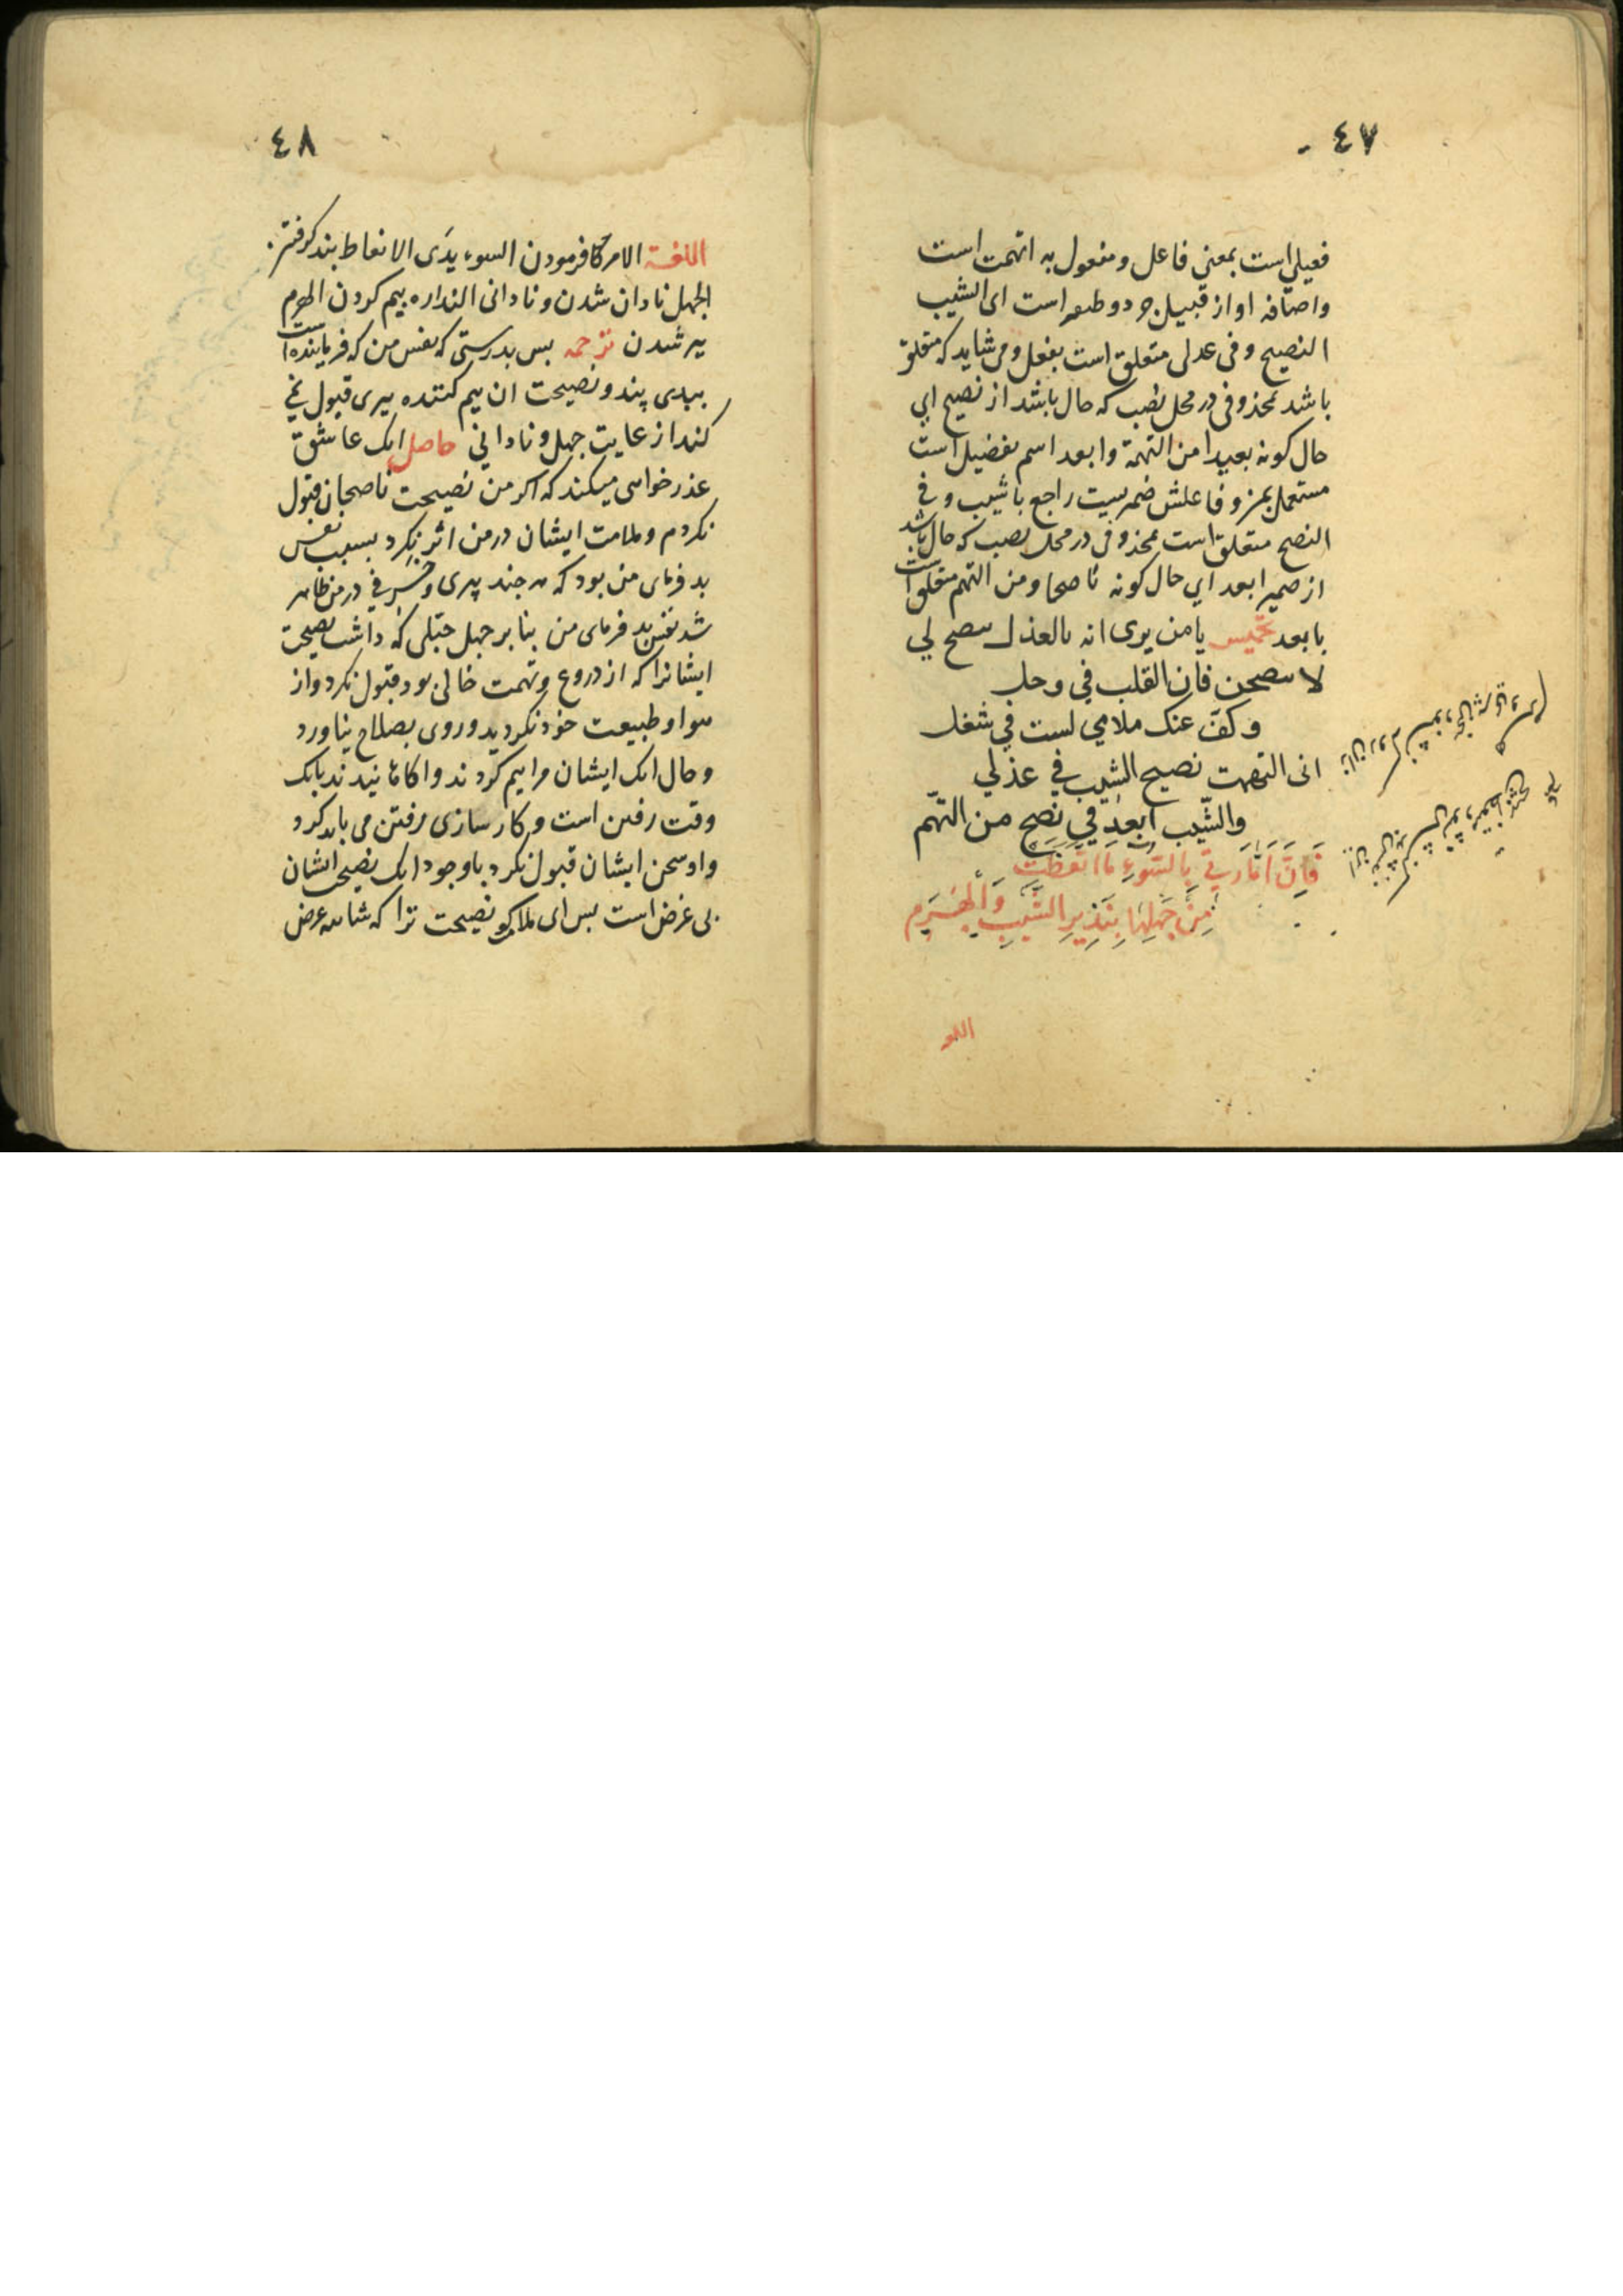 ٤٧
فعیلی است بمعنی فاعل و مفعول به اتهمت است
واضافه او از قبیل جرد است ای الشیب
النصیح و فی عدلی متعلق است بفعل و می شاید که متعلق
باشد بمحذوفی در محل نصب که حال باشد از نصیح ای
حال کونه بعیدا من التهمة وابعد اسم تفضیل است
مستعمل بمن و فاعلش ضمیریست راجع با شیب و فی
النصح متعلق است بمحذوفی در محل نصب که حال باشد
از ضمیر ابعد ای حال کونه ناصحا ومن التهم متعلق است
بابعد تخمیس یا من یری انه بالعذل ینصح لی
لا تنصحن فان القلب فی وحل
وکف عنک ملامی لست فی شغل
انی اتهمت نصیح الشیب فی عذلی
والشّیب ابعد فی نصح من التّهم
فَاِنَّ اَمَّارَتِی بِالسُّوءِ مَا اتَّعَظَتْ
مِنْ جَهْلِهَا بِنَذِیرِ الشَّیْبِ وَالْهَرَمِ
اللغه
٤٨
اللغة الامر کافرمودن السوء بدی الاتعاظ پند کرفتن
الجهل نادان شدن و نادانی النداره بیم کردن الهرم
پیر شدن ترجمه پس بدرستی که نفس من که فرماینده است
ببدی پند و نصیحت ان بیم کننده پیری قبول نمی
کند از غایت جهل و نادانی حاصل انک عاشق
عذر خواهی میکند که اکر من نصیحت ناصحان قبول
نکردم و ملامت ایشان در من اثر نکرد بسبب نفس
بد فرمای من بود که هر چند پیری و خرفی در من ظاهر
شد نفس بد فرمای من بنا بر جهل جبلی که داشت نصیحت
ایشانرا که از دروغ و تهمت خالی بود قبول نکرد و از
هوا و طبیعت خود نکردید و روی بصلاح نیاورد
و حال انک ایشان مرا بیم کردند و اکاهانیدند بانک
وقت رفتن است و کار سازی رفتن می باید کرد
و او سخن ایشان قبول نکرد با وجود انک نصیحت ایشان
بی غرض است پس ای ملامت کو نصیحت ترا که شائبه غرض